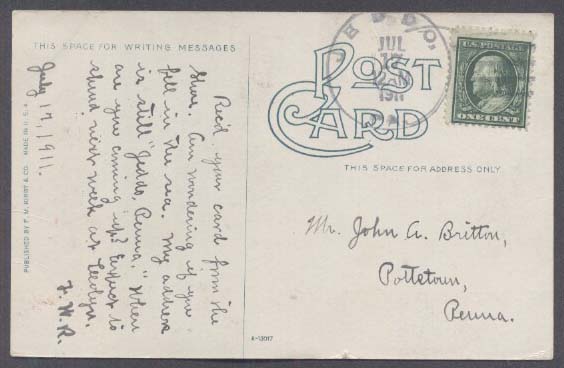 THIS SPACE FOR WRITING MESSAGES
July 17, 1911.
Rec'd your card from the
shore. Am wondering if you
fell in the sea. My address
is still "Jeddo, Penna." When
are you coming up? Expect to
spend next week at
F. W. R.
PUBLISHED BY F. M. KIRBY & CO. MADE IN U. S. A.
POST
CARD
JUL
17
1911
U.S. POSTAGE
ONE CENT
THIS SPACE FOR ADDRESS ONLY
Mr. John A. Britton,
Pottstown,
Penna.
A-13017